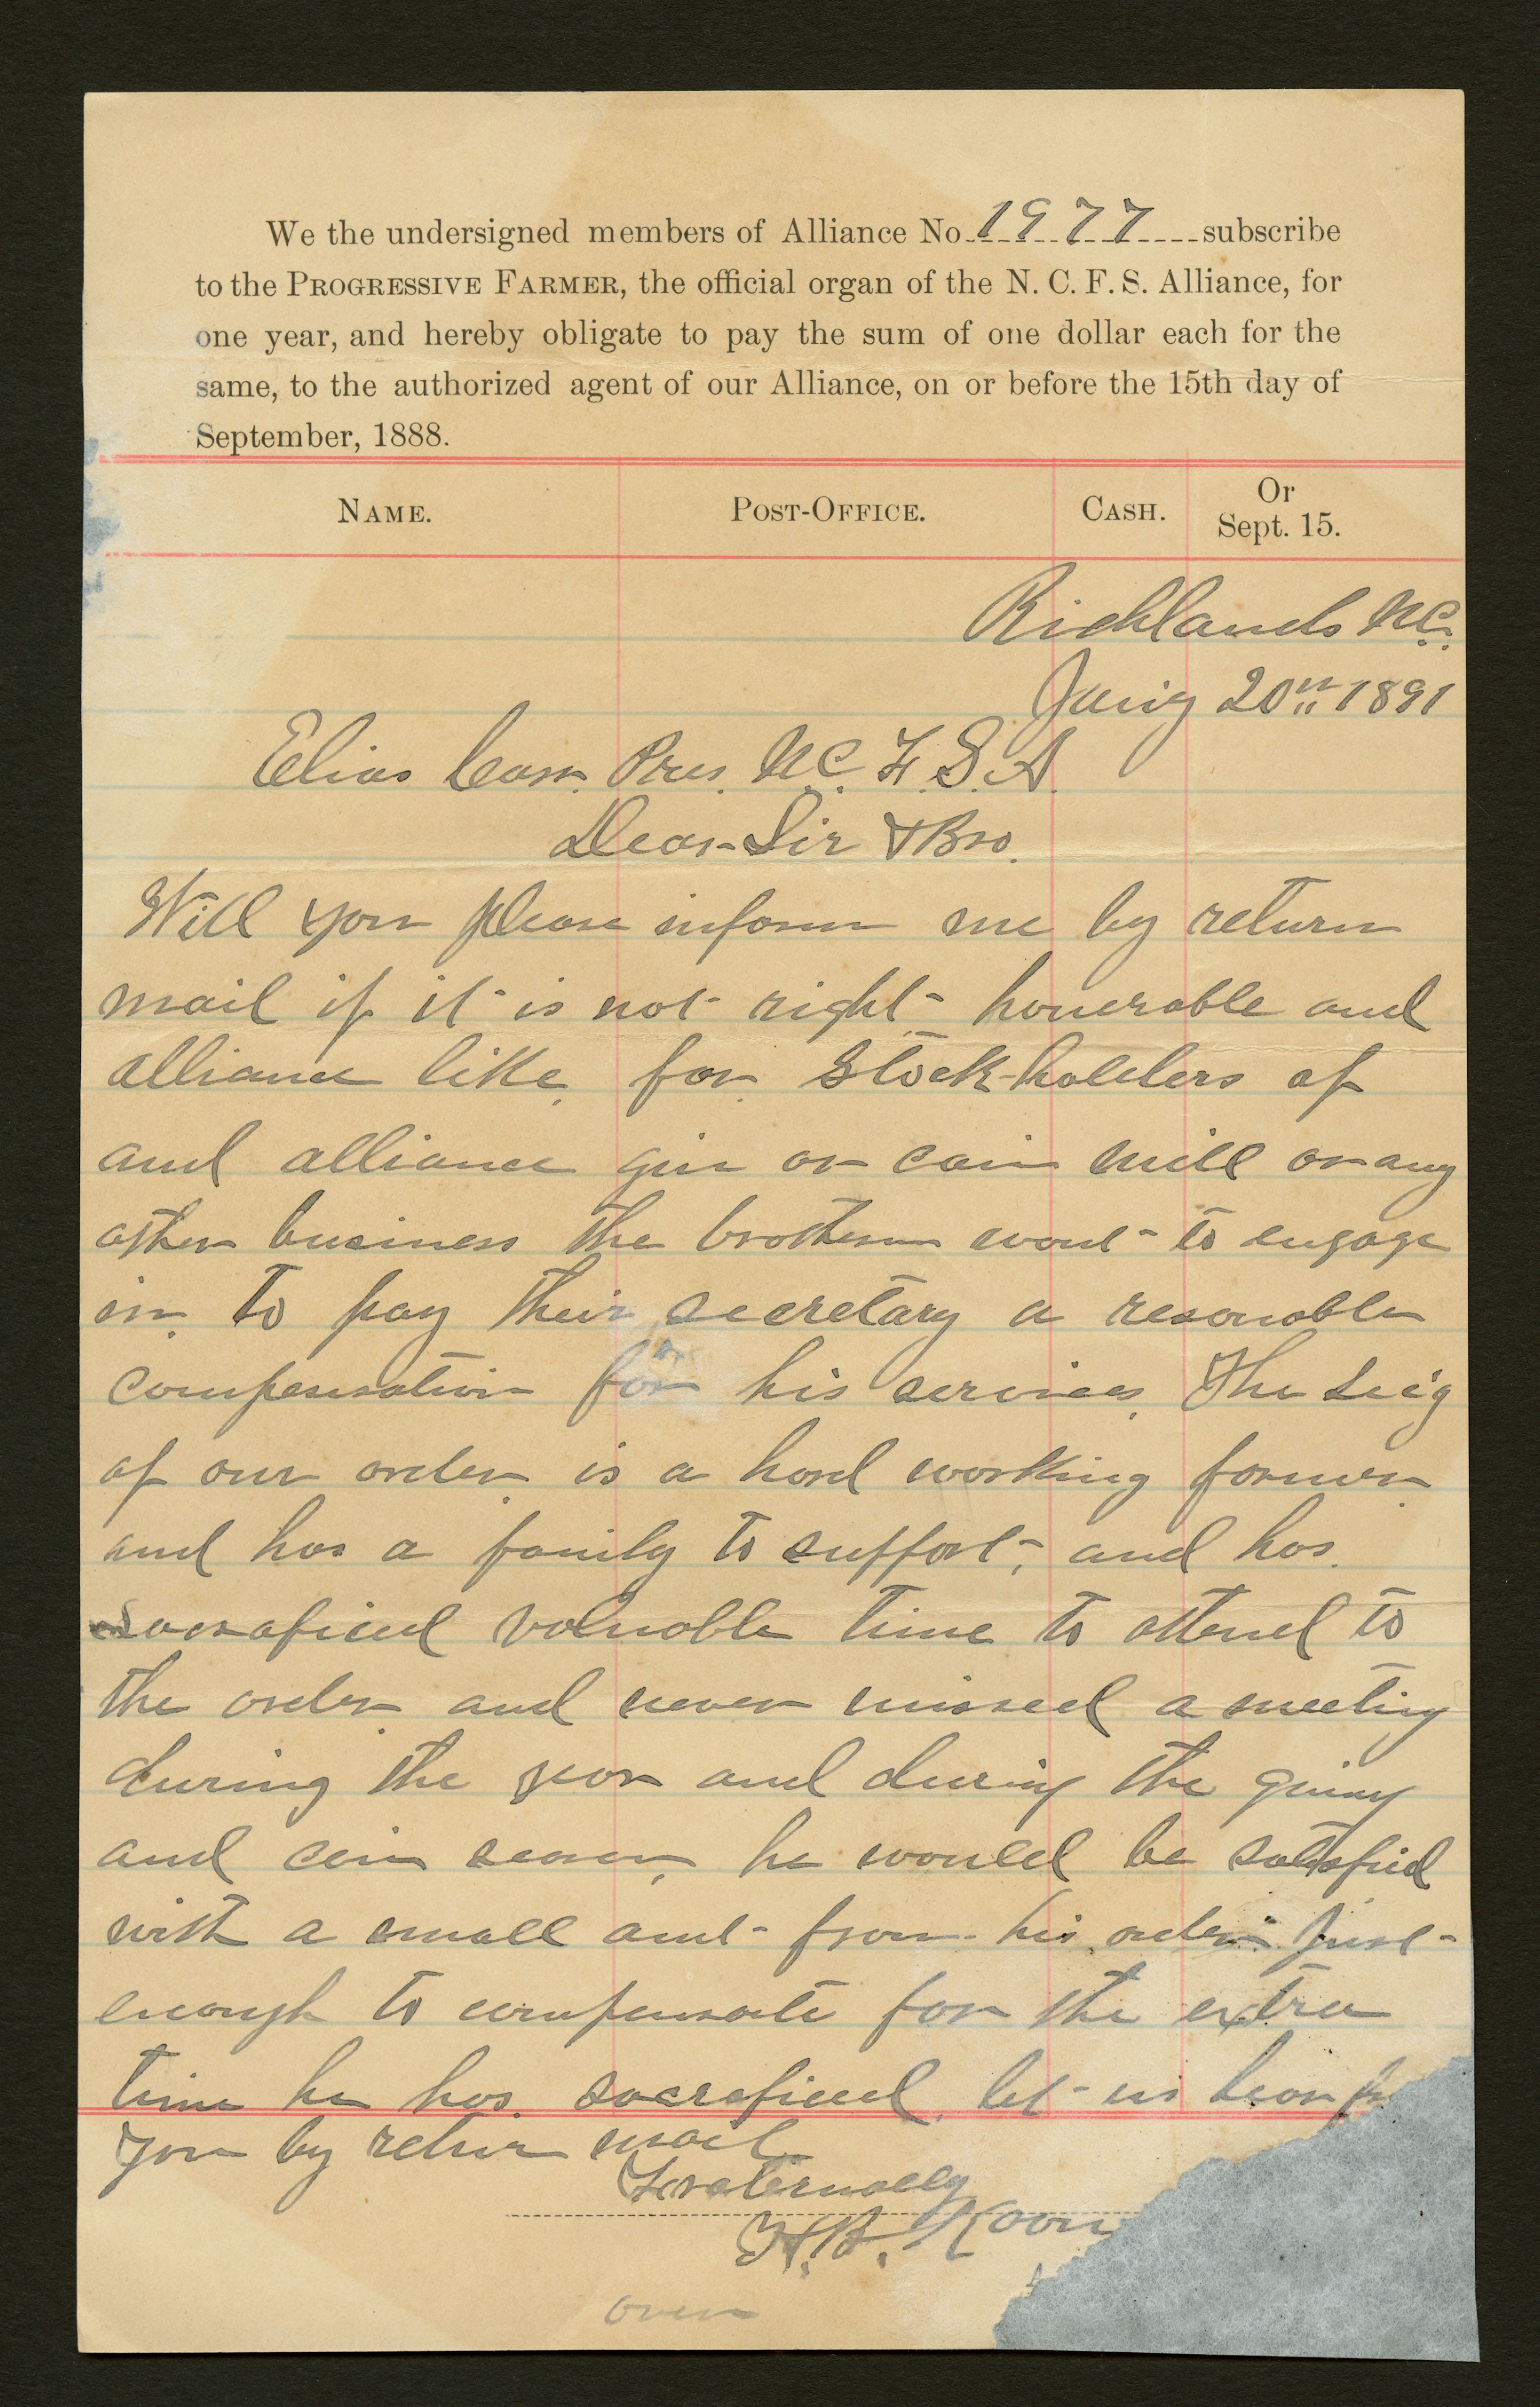 We the undersigned members of Alliance No. 1977 subscribe
to the PROGRESSIVE FARMER, the official organ of the N. C. F. S. Alliance, for
one year, and hereby obligate to pay the sum of one dollar each for the
same, to the authorized agent of our Alliance, on or before the 15th day of
September, 1888.
NAME. POST-OFFICE. CASH. Or Sept. 15.
Richlands N.C.
20th 1891
Elias Carr. Pres. N.C. F. S. A.
Dear Sir & Bro.
Will you please inform me by return
mail if it is not right honerable and
alliance like for Stock-holders of
and alliance gin or cain mill or any
other business the brothern want to engage
in. to pay their secretary a resonable
compensation for his services. The Sec'y
of our order is a hard working farmer
and has a family to support, and has
sacraficed valuable time to attend to
the order and never missed a meeting
during the year and during the gining
and cain season, he would be satisfied
with a small amt from his order just
enough to compensate for the extra
time he has sacraficed. let us hear
you by return mail
Fraternally
H.B. Koon
over